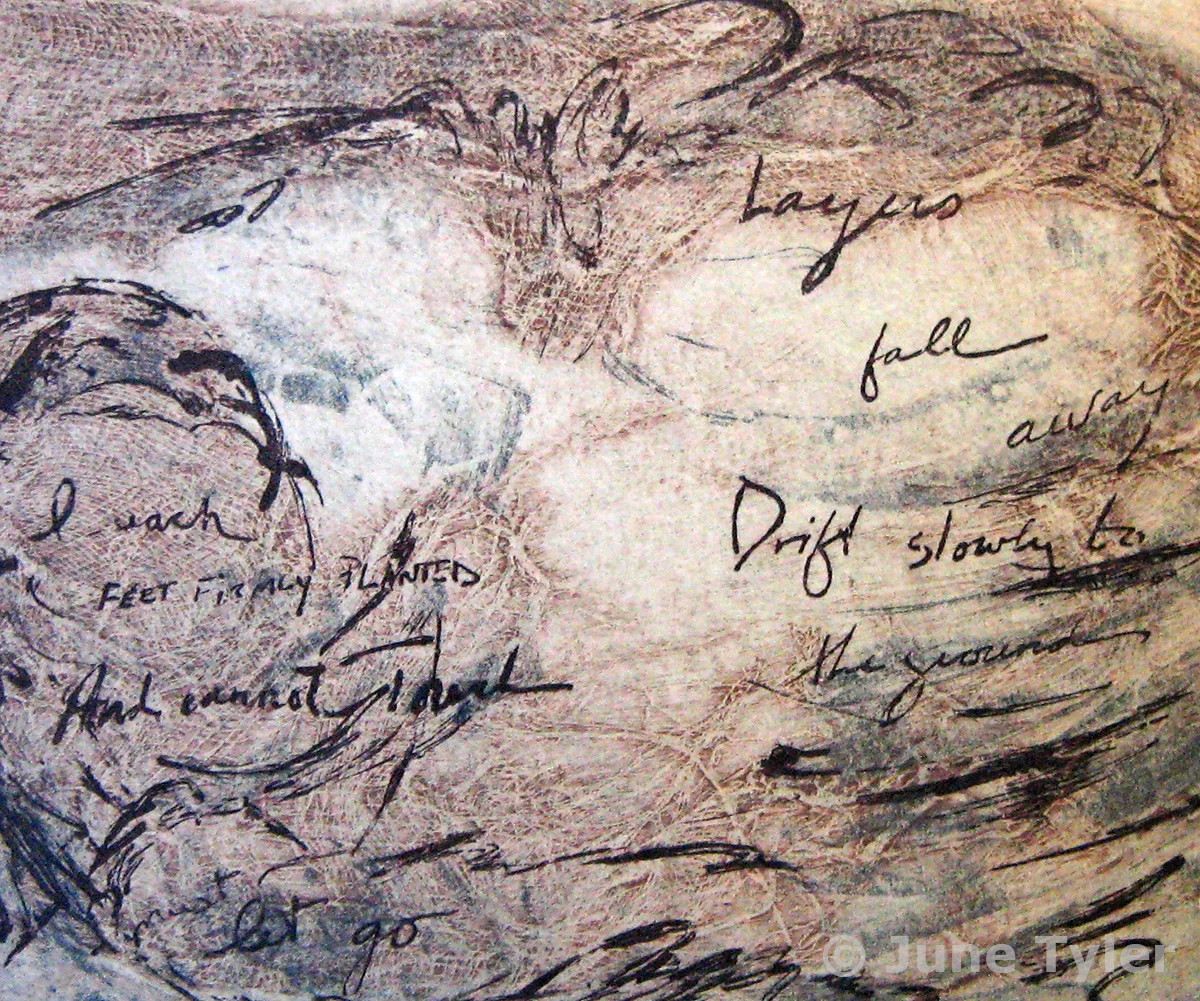 Layers
fall
away
Drift slowly to
the ground
I reach
FEET FIRMLY PLANTED
And cannot touch
I must
let go
© June Tyler